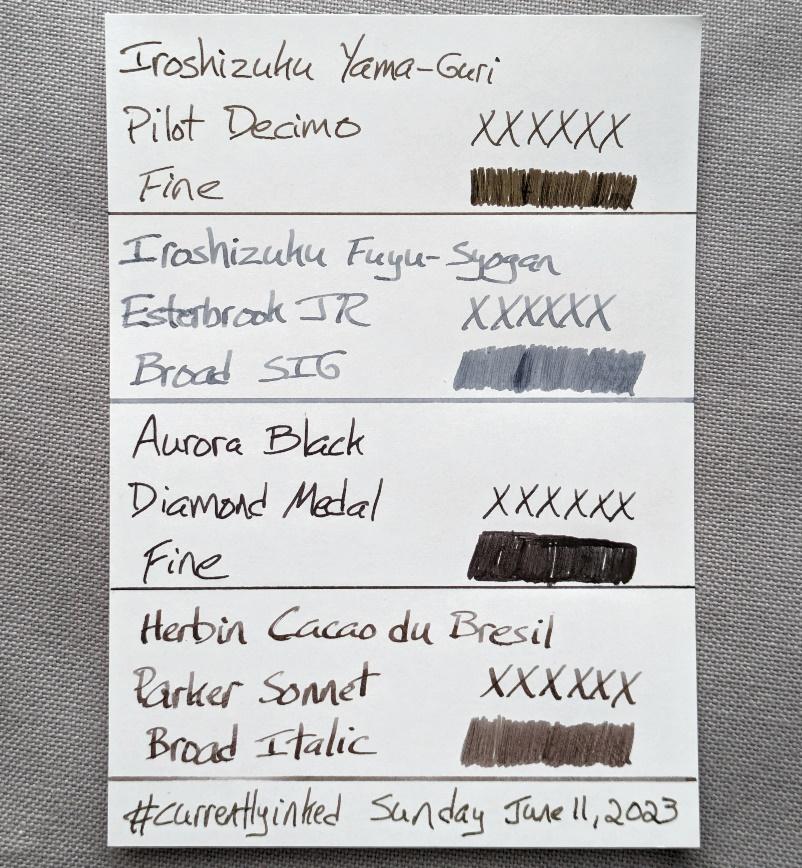 Iroshizuku Yama-Guri
Pilot Decimo XXXXXX
Fine
Iroshizuku Fuyu-Syogan
Esterbrook JR XXXXXX
Broad SIG
Aurora Black
Diamond Medal XXXXXX
Fine
Herbin Cacao du Bresil
Parker Sonnet XXXXXX
Broad Italic
#currentlyinked Sunday June 11, 2023